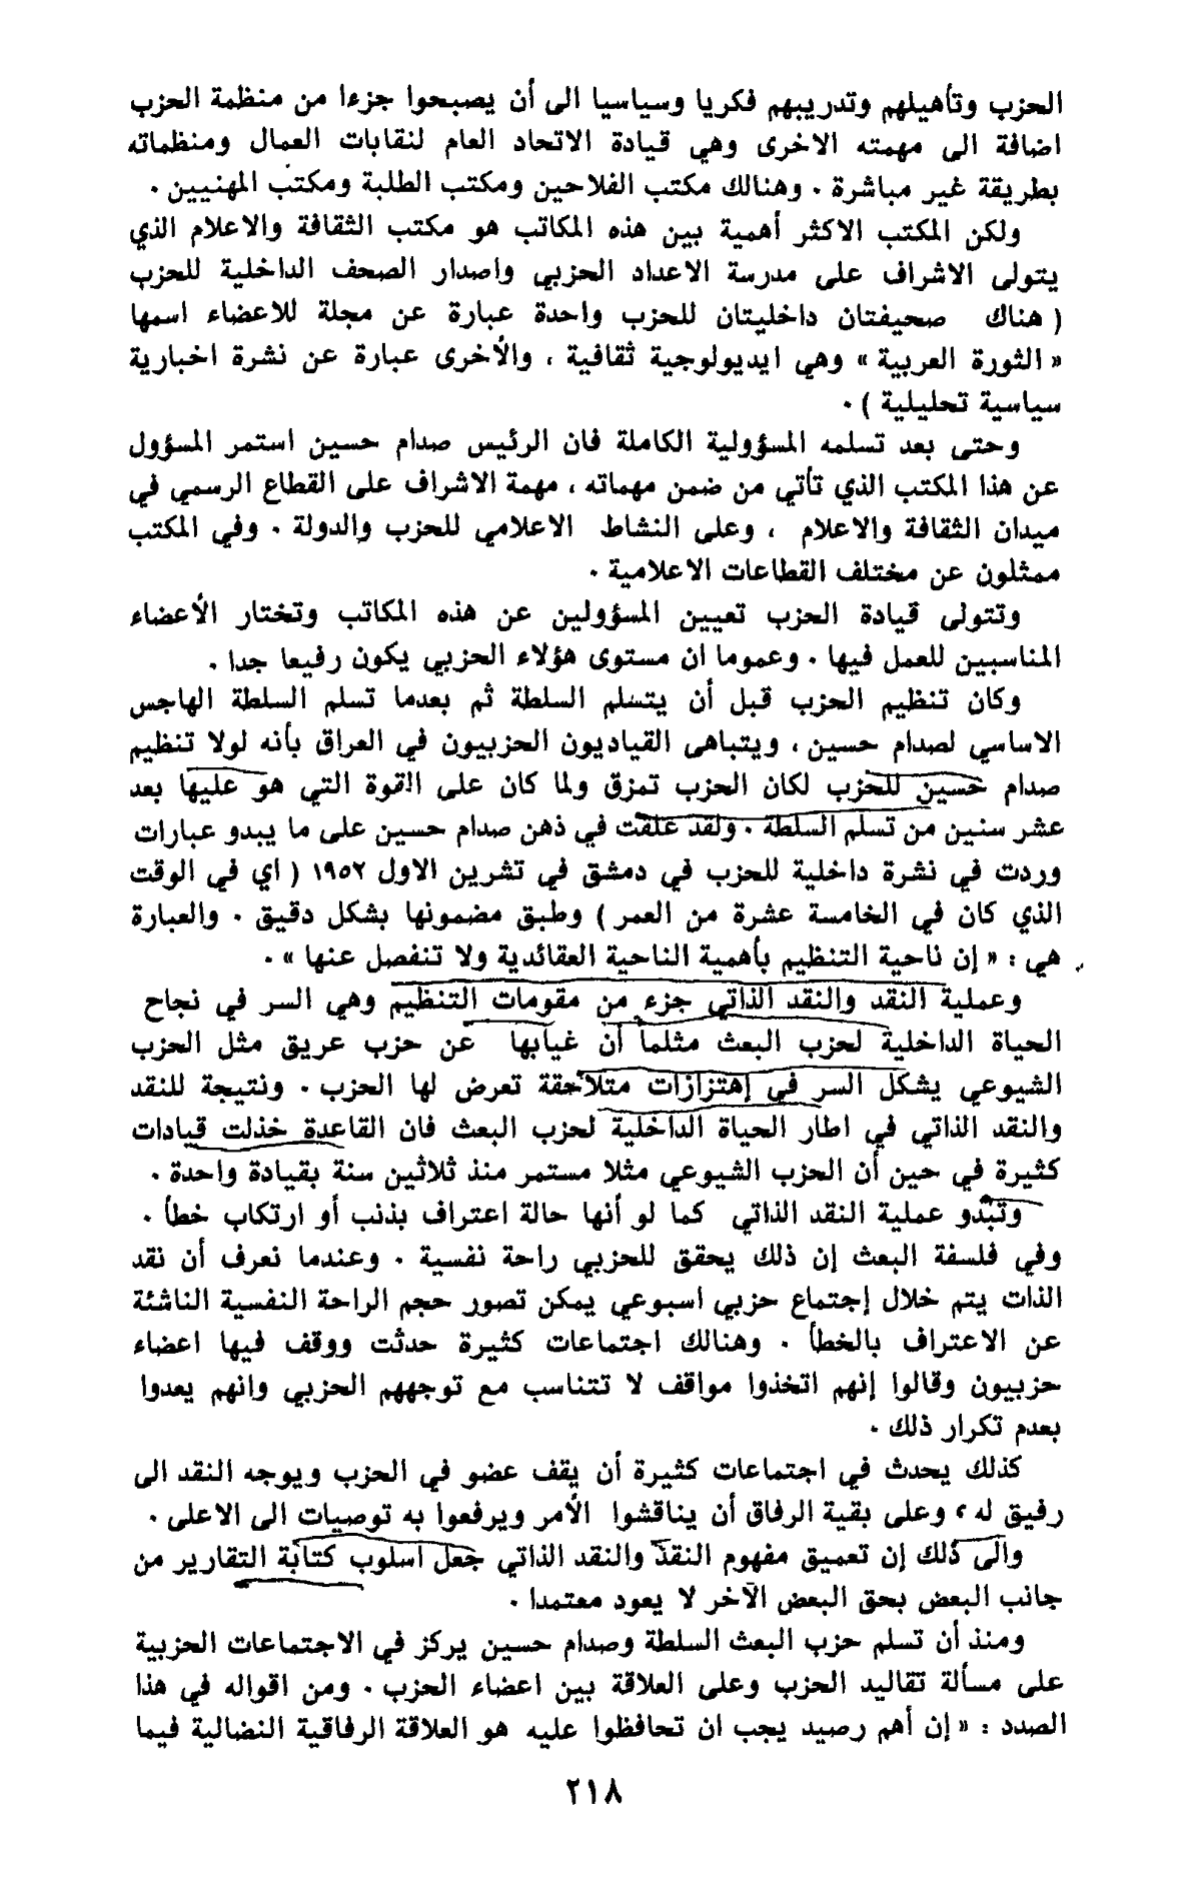 الحزب وتأهيلهم وتدريبهم فكريا وسياسيا الى أن يصبحوا جزءا من منظمة الحزب
اضافة الى مهمته الاخرى وهي قيادة الاتحاد العام لنقابات العمال ومنظماته
بطريقة غير مباشرة . وهنالك مكتب الفلاحين ومكتب الطلبة ومكتب المهنيين .
ولكن المكتب الاكثر أهمية بين هذه المكاتب هو مكتب الثقافة والاعلام الذي
يتولى الاشراف على مدرسة الاعداد الحزبي واصدار الصحف الداخلية للحزب
( هناك صحيفتان داخليتان للحزب واحدة عبارة عن مجلة للاعضاء اسمها
« الثورة العربية » وهي ايديولوجية ثقافية ، والأخرى عبارة عن نشرة اخبارية
سياسية تحليلية ) .
وحتى بعد تسلمه المسؤولية الكاملة فان الرئيس صدام حسين استمر المسؤول
عن هذا المكتب الذي تأتي من ضمن مهماته ، مهمة الاشراف على القطاع الرسمي في
ميدان الثقافة والاعلام ، وعلى النشاط الاعلامي للحزب والدولة . وفي المكتب
ممثلون عن مختلف القطاعات الاعلامية .
وتتولى قيادة الحزب تعيين المسؤولين عن هذه المكاتب وتختار الأعضاء
المناسبين للعمل فيها . وعموما ان مستوى هؤلاء الحزبي يكون رفيعا جدا .
وكان تنظيم الحزب قبل أن يتسلم السلطة ثم بعدما تسلم السلطة الهاجس
الاساسي لصدام حسين ، ويتباهى القياديون الحزبيون في العراق بأنه لولا تنظيم
صدام حسين للحزب لكان الحزب تمزق ولما كان على القوة التي هو عليها بعد
عشر سنين من تسلم السلطة . ولقد علقت في ذهن صدام حسين على ما يبدو عبارات
وردت في نشرة داخلية للحزب في دمشق في تشرين الاول ١٩٥٢ ( اي في الوقت
الذي كان في الخامسة عشرة من العمر ) وطبق مضمونها بشكل دقيق . والعبارة
هي : « إن ناحية التنظيم بأهمية الناحية العقائدية ولا تنفصل عنها » .
وعملية النقد والنقد الذاتي جزء من مقومات التنظيم وهي السر في نجاح
الحياة الداخلية لحزب البعث مثلما أن غيابها عن حزب عريق مثل الحزب
الشيوعي يشكل السر في إهتزازات متلاحقة تعرض لها الحزب . ونتيجة للنقد
والنقد الذاتي في اطار الحياة الداخلية لحزب البعث فان القاعدة خذلت قيادات
كثيرة في حين أن الحزب الشيوعي مثلا مستمر منذ ثلاثين سنة بقيادة واحدة .
وتبدو عملية النقد الذاتي كما لو أنها حالة اعتراف بذنب أو ارتكاب خطأ .
وفي فلسفة البعث إن ذلك يحقق للحزبي راحة نفسية . وعندما نعرف أن نقد
الذات يتم خلال إجتماع حزبي اسبوعي يمكن تصور حجم الراحة النفسية الناشئة
عن الاعتراف بالخطأ . وهنالك اجتماعات كثيرة حدثت ووقف فيها اعضاء
حزبيون وقالوا إنهم اتخذوا مواقف لا تتناسب مع توجههم الحزبي وانهم يعدوا
بعدم تكرار ذلك .
كذلك يحدث في اجتماعات كثيرة أن يقف عضو في الحزب ويوجه النقد الى
رفيق له ، وعلى بقية الرفاق أن يناقشوا الأمر ويرفعوا به توصيات الى الاعلى .
والى ذلك إن تعميق مفهوم النقد والنقد الذاتي جعل اسلوب كتابة التقارير من
جانب البعض بحق البعض الآخر لا يعود معتمدا .
ومنذ أن تسلم حزب البعث السلطة وصدام حسين يركز في الاجتماعات الحزبية
على مسألة تقاليد الحزب وعلى العلاقة بين اعضاء الحزب . ومن اقواله في هذا
الصدد : « إن أهم رصيد يجب ان تحافظوا عليه هو العلاقة الرفاقية النضالية فيما
٢١٨